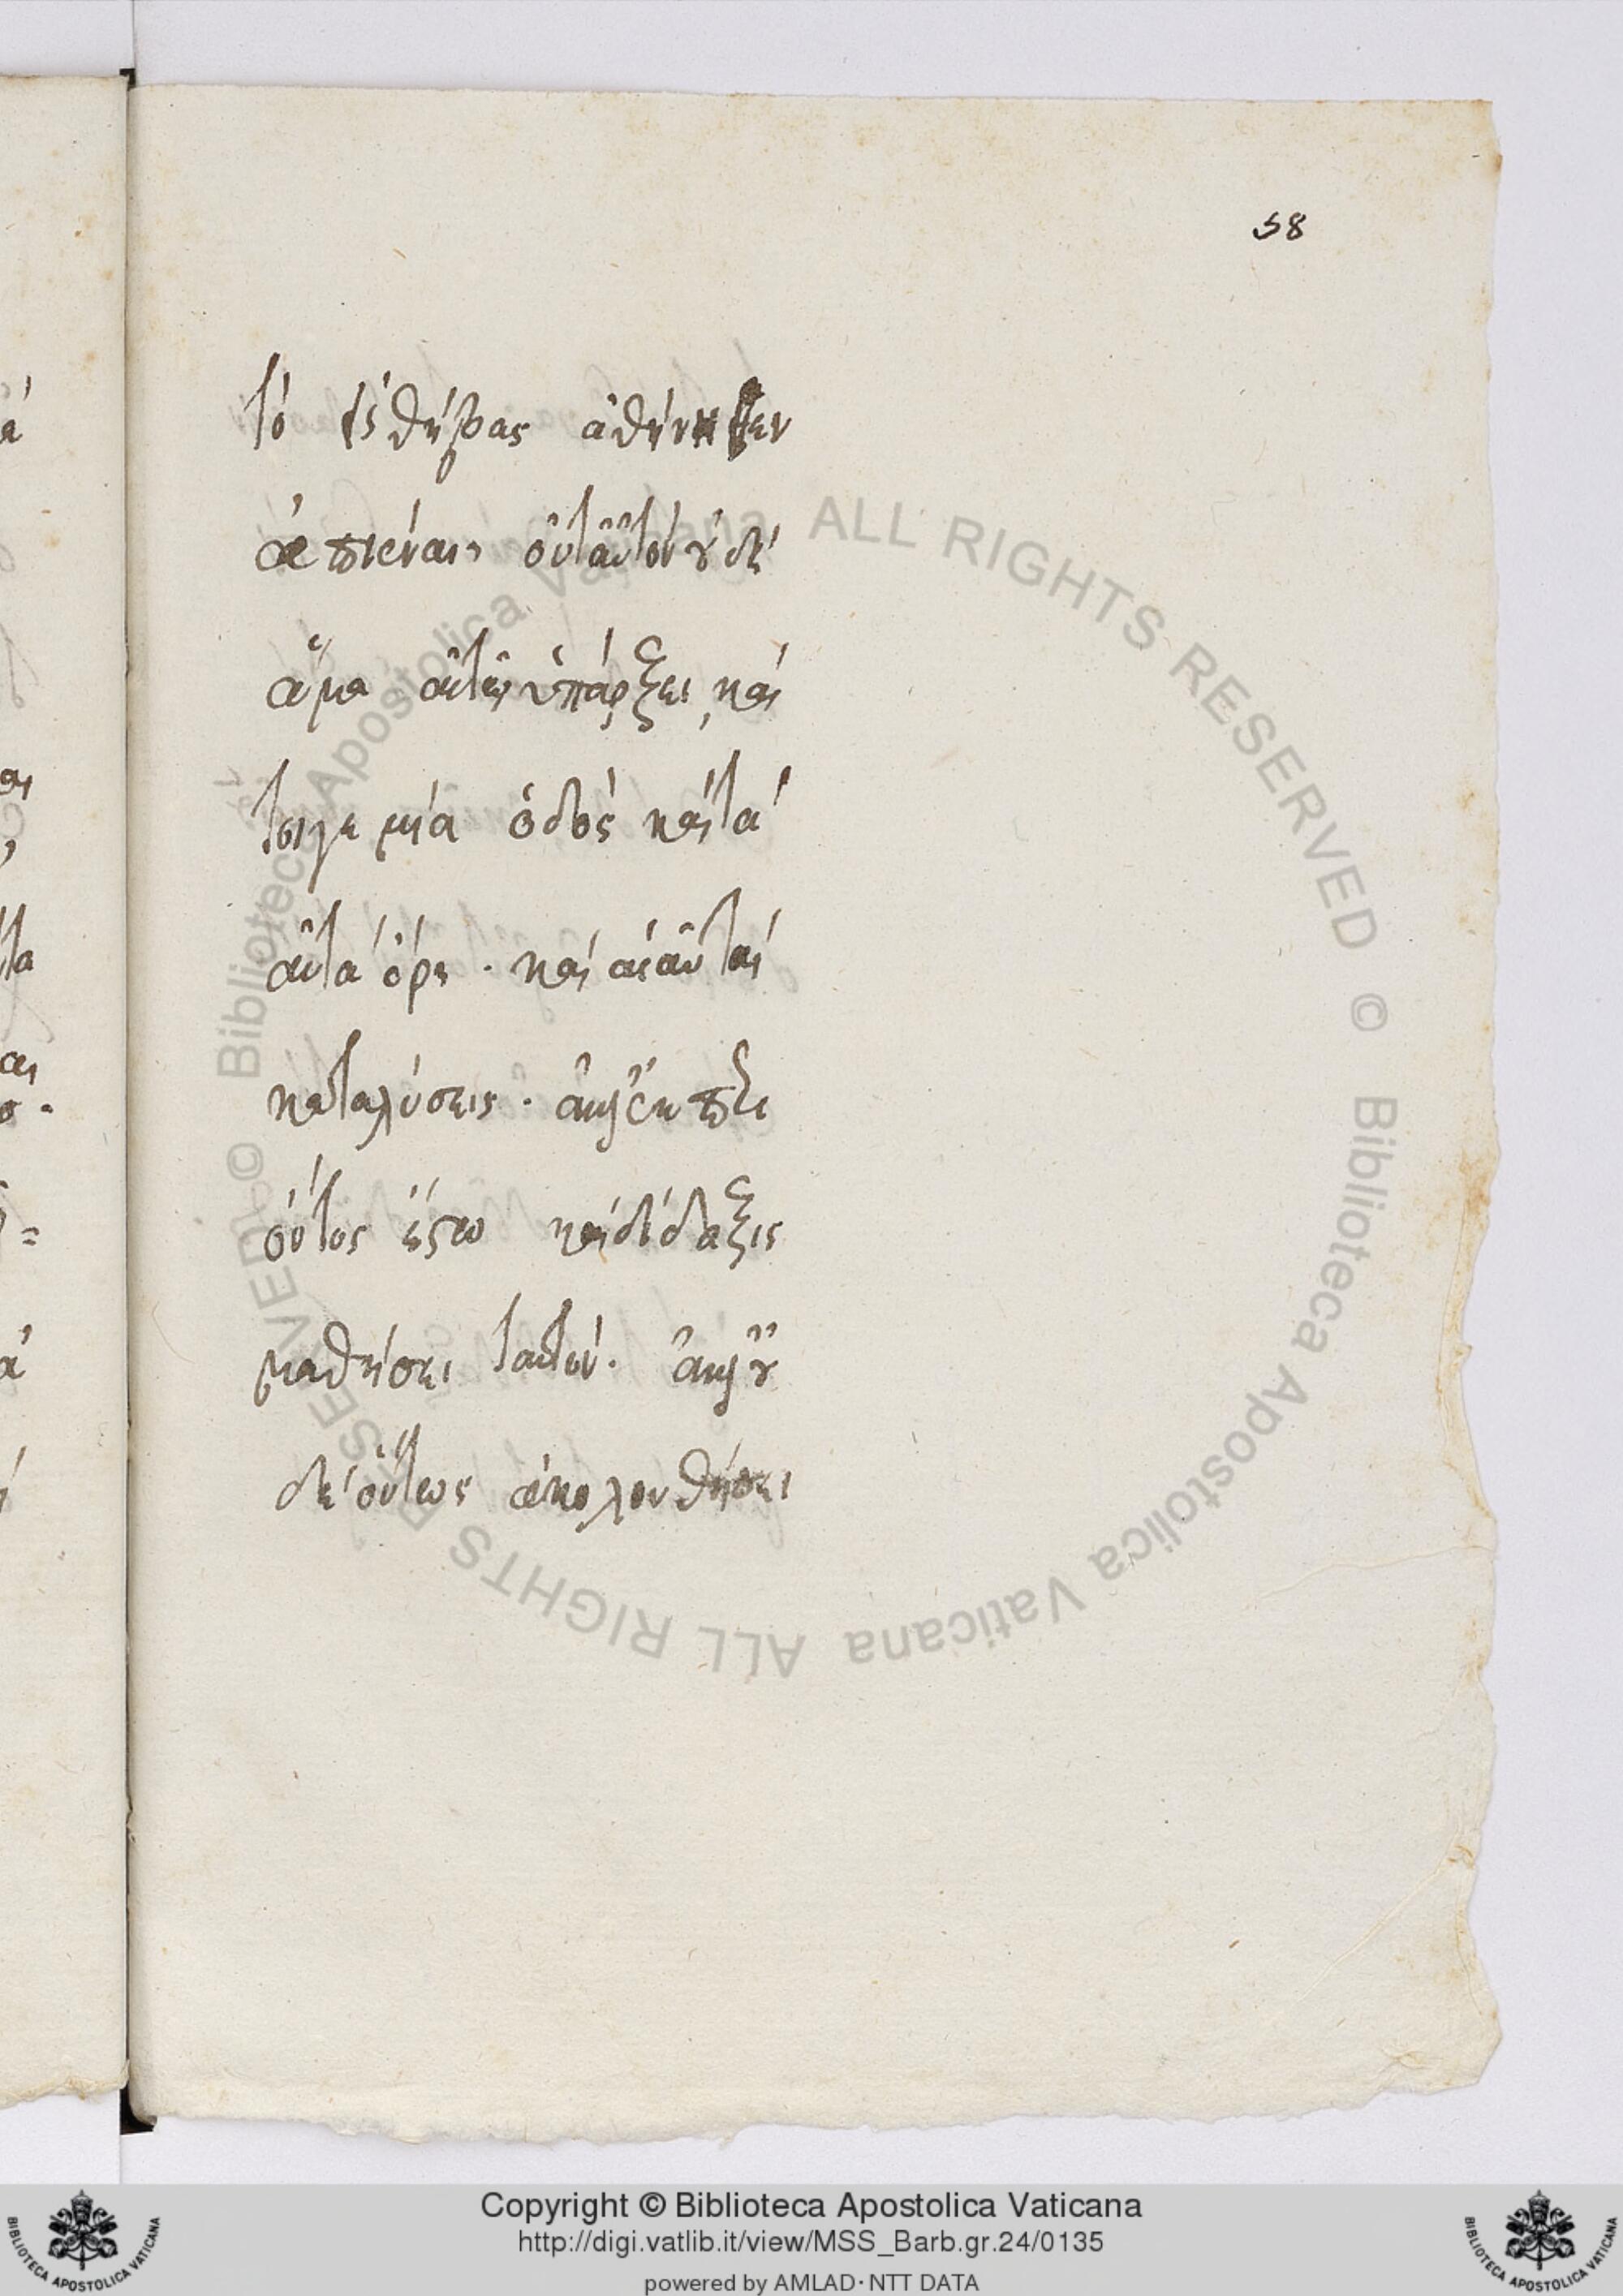 58
τό εἰς θήβας ἀθήνηθεν
ἀπιέναι, οὐ ταυτόν οὐδέ
ἅμα αὐτῶ ὑπάρξει, καί
τοιγε μία ὁδός καί τά
αὐτά ὄρη. καί αἱ αὐταί
καταλύσεις. ἀλλ'
οὗτος ἔστω καί δίδαξις
μαθήσει ταυτόν. ἀλλ' οὐ
δέ οὕτως ἀκολουθήσει
Copyright © Biblioteca Apostolica Vaticana
http://digi.vatlib.it/view/MSS_Barb.gr.24/0135
powered by AMLAD · NTT DATA
BIBLIOTECA APOSTOLICA VATICANA
BIBLIOTECA APOSTOLICA VATICANA
© Biblioteca Apostolica Vaticana ALL RIGHTS RESERVED © Biblioteca Apostolica Vaticana ALL RIGHTS RESERVED